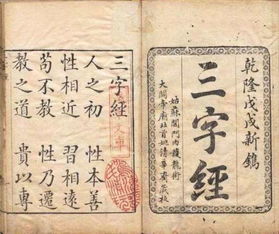 乾隆戊戌新鐫
三字經
姑蘇閶門內
三字經
人之初　性本善
性相近　習相遠
苟不教　性乃遷
教之道　貴以專